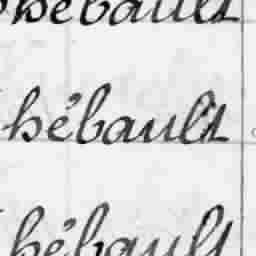 hébault
hébault
hébault